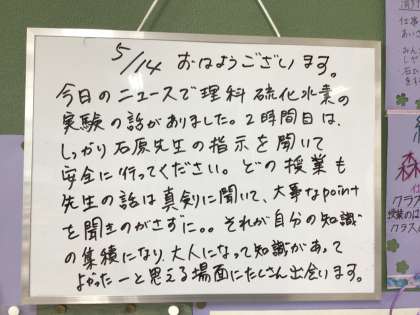 5/14 おはようございます。
今日のニュースで理科 硫化水素の
実験の話がありました。2時間目は、
しっかり石原先生の指示を聞いて
安全に行ってください。どの授業も
先生の話は真剣に聞いて、大事なpoint
を聞きのがさずに。。それが自分の知識
の集積になり、大人になって知識があって
よかったーと思える場面にたくさん出会います。
森
クラス